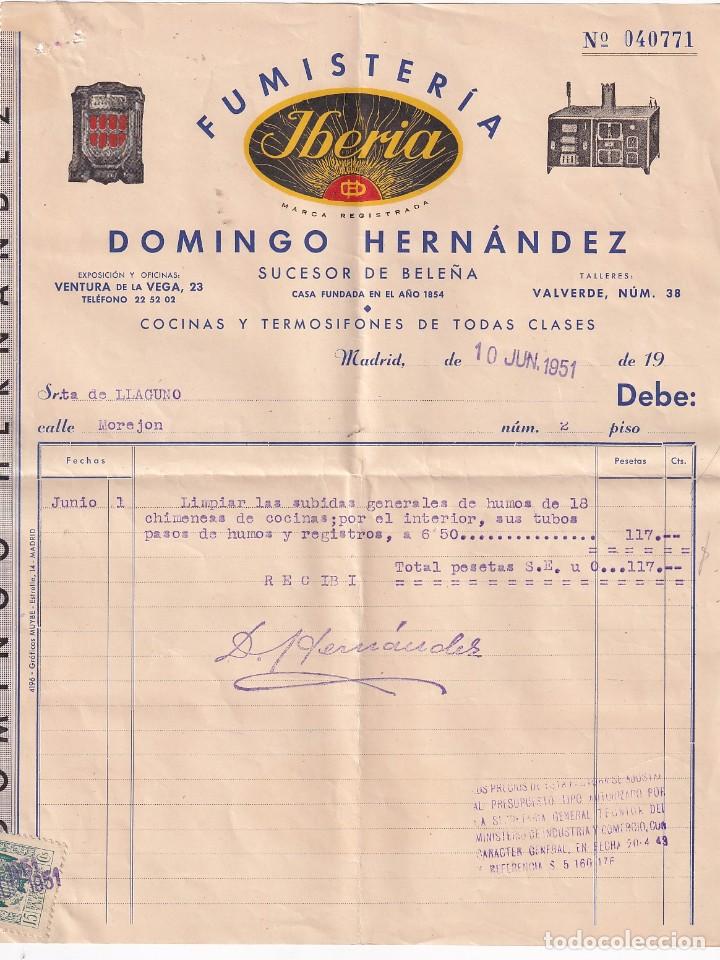 Nº 040771
FUMISTERÍA
Iberia
MARCA REGISTRADA
DOMINGO HERNÁNDEZ
SUCESOR DE BELEÑA
CASA FUNDADA EN EL AÑO 1854
EXPOSICIÓN Y OFICINAS:
VENTURA DE LA VEGA, 23
TELÉFONO 22 52 02
TALLERES:
VALVERDE, NÚM. 38
COCINAS Y TERMOSIFONES DE TODAS CLASES
Madrid, de 10 JUN. 1951 de 19
Srta de LLAGUNO Debe:
calle Morejon núm. 2 piso
Fechas Pesetas Cts.
Junio 1 Limpiar las subidas generales de humos de 18
chimeneas de cocinas;por el interior, sus tubos
pasos de humos y registros, a 6'50............... 117.--
= = = = = =
Total pesetas S.E. u O...117.--
R E C I B I = = = = = = = = = = = = = = = =
D. Hernández
LOS PRECIOS DE ESTA FACTURA SE AJUSTAN
AL PRESUPUESTO TIPO AUTORIZADO POR
LA SECRETARIA GENERAL TECNICA DEL
MINISTERIO DE INDUSTRIA Y COMERCIO, CON
CARACTER GENERAL, EN FECHA 20-4-43
Y REFERENCIA S. 5 160 176
4196 - Gráficas MUYBE - Estrella, 14 - MADRID
DOMINGO HERNANDEZ
1951
15
todocoleccion